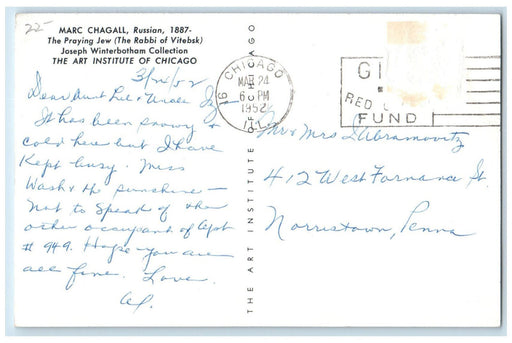 22-
MARC CHAGALL, Russian, 1887-
The Praying Jew (The Rabbi of Vitebsk)
Joseph Winterbotham Collection
THE ART INSTITUTE OF CHICAGO
3/24/52
Dear Aunt Lil & Uncle Izzy
It has been snowy &
cold here but I have
kept busy. Miss
Wash & the sunshine —
not to speak of the
other occupant of Apt
# 949. Hope you are
all fine. Love
Al.
THE ART INSTITUTE OF CHICAGO
CHICAGO
MAR 24
6 PM
1952
ILL.
GI
RED
FUND
Mr & Mrs I Abramovitz
412 West Fornance St.
Norristown, Penna